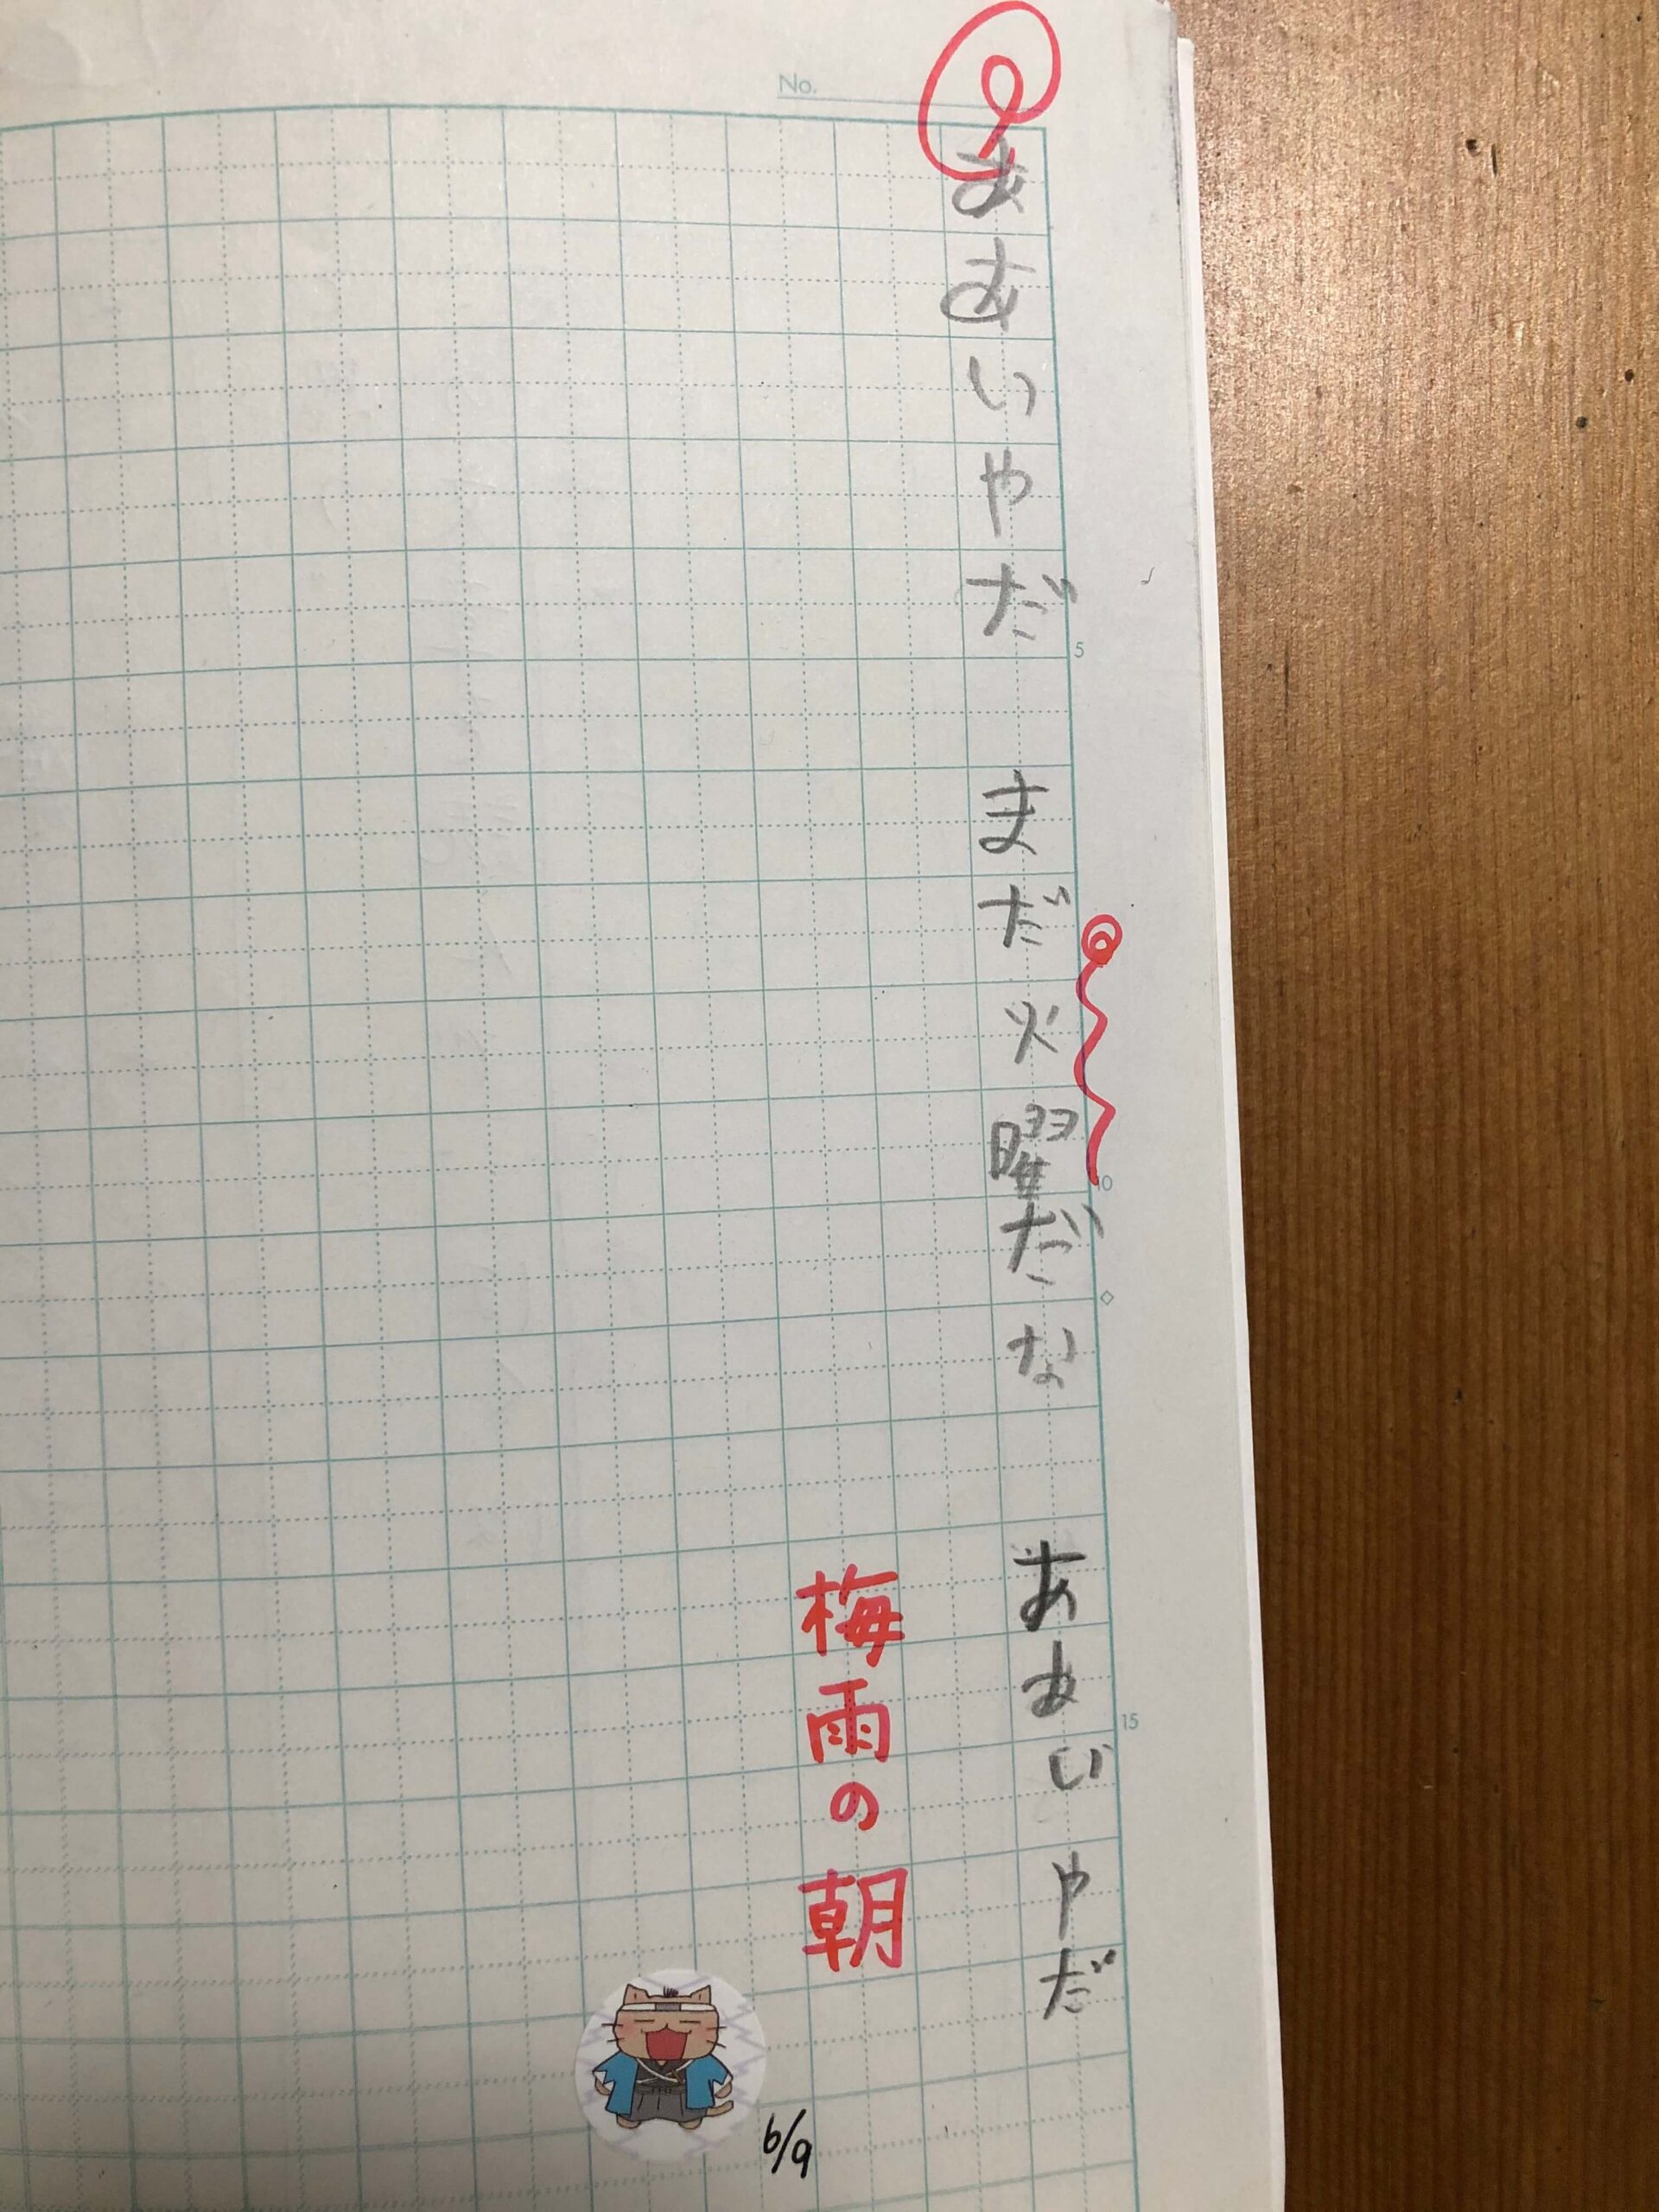 No.
ああいやだ　まだ火曜だな　ああいやだ
梅雨の朝
5
10
15
6/9